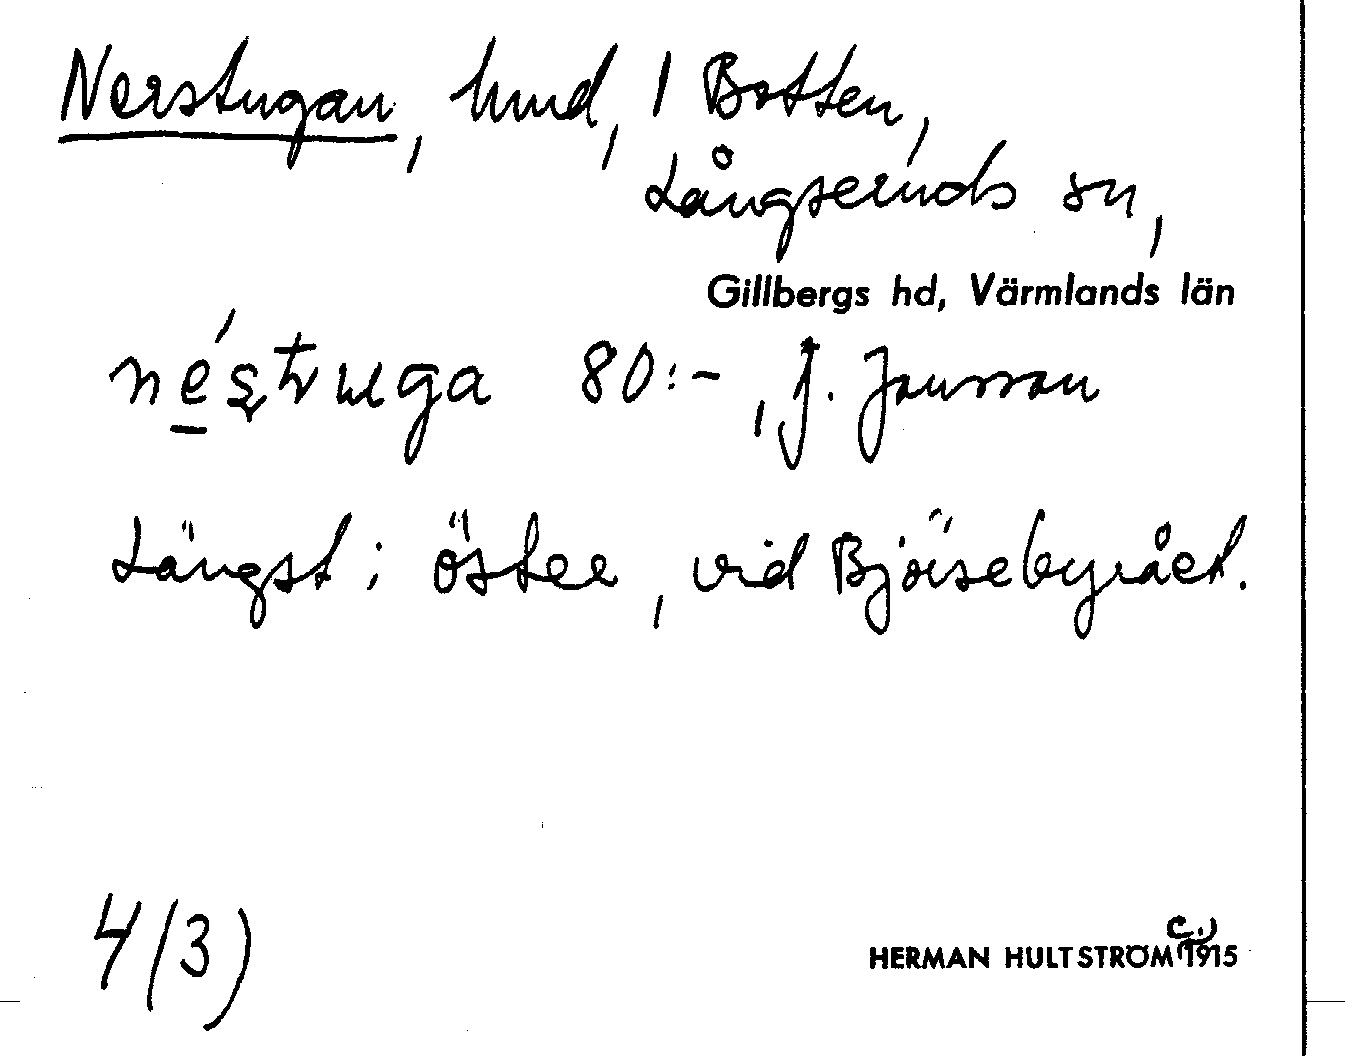 Nerstugan, hmd, 1 Botten,
Långseruds sn,
Gillbergs hd, Värmlands län
néstuga 80:-, J. Jansson
Längst i öster, vid Björsebyrået.
4(3)
HERMAN HULTSTRÖM (c.) 1915